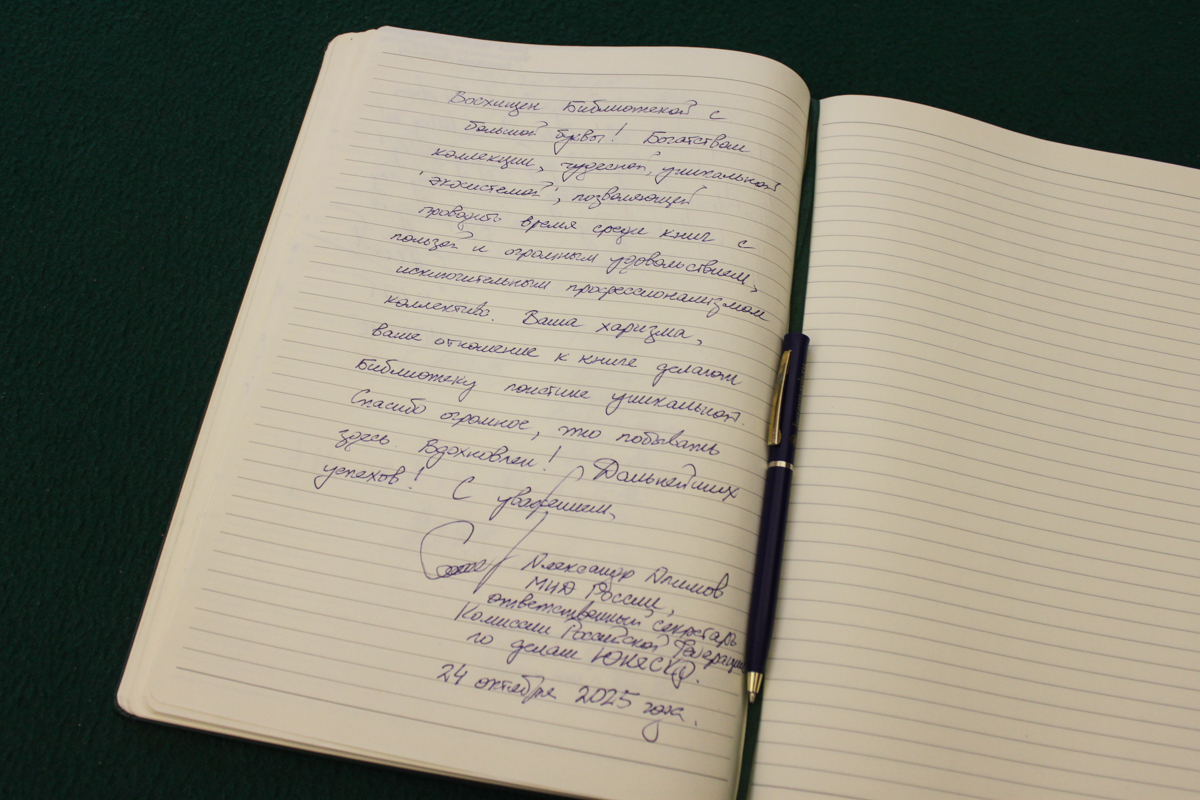 Восхищен Библиотекой с
большой буквы! Богатством
коллекции, чудесной, уникальной
"экосистемой", позволяющей
проводить время среди книг с
пользой и огромным удовольствием,
исключительным профессионализмом
коллектива. Ваша харизма,
ваше отношение к книге делают
Библиотеку поистине уникальной.
Спасибо огромное, что побывать
здесь. Вдохновлен! Дальнейших
успехов! С уважением,
Александр Алимов
МИД России,
ответственный секретарь
Комиссии Российской Федерации
по делам ЮНЕСКО.
24 октября 2025 года.